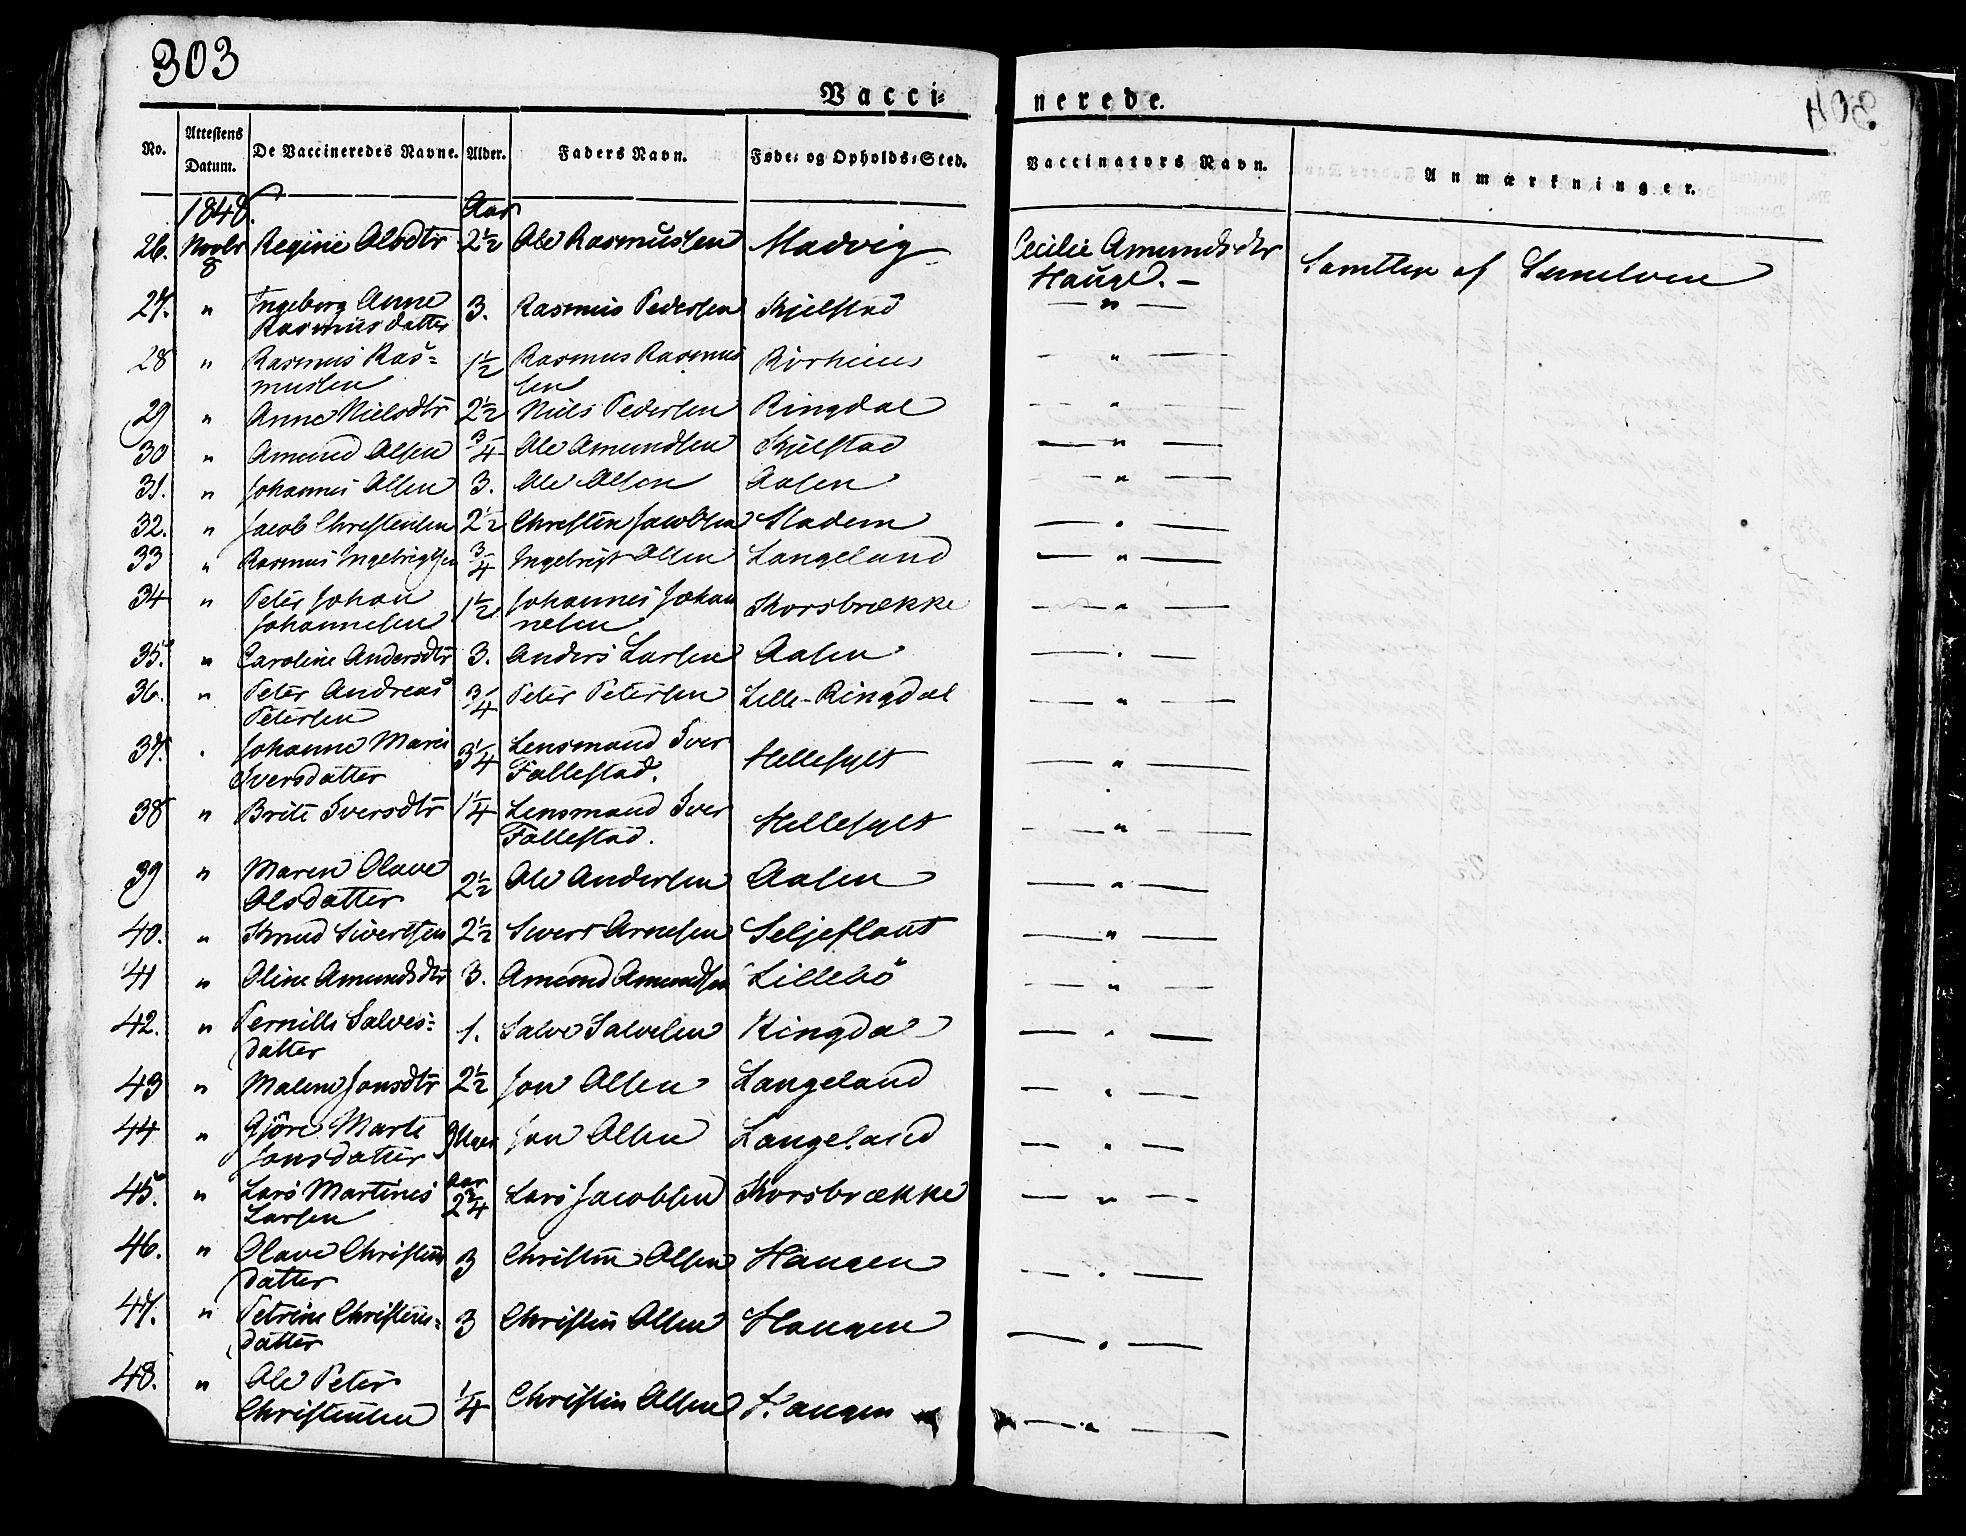 303
Vacci-
nerede.
No.
Attestens Datum.
De Vaccineredes Navne.
Alder.
Faders Navn.
Føde- og Opholds-Sted.
Vaccinators Navn.
Anmærkninger.
1848. Aar
26. Novbr 8 Regine Olsdtr 2½ Ole Rasmussen Madvig Cecilie Amundsdtr Hauge. — Samtlige af Sunelven
27. " Ingeborg Anne Rasmusdatter 3. Rasmus Pedersen Skjelstad — " —
28 " Rasmus Ras=
mussen 1½ Rasmus Rasmus
sen Rørhuus — " —
29 " Anne Nielsdtr 2½ Niels Pedersen Ringdal — " —
30 " Amund Olsen ¾ Ole Amundsen Skjelstad — " —
31. " Johannes Olsen 3. Ole Olsen Aasen — " —
32. " Jacob Christensen 2½ Christen Jacobsen Stadem — " —
33 " Rasmus Ingebrigtsen ¾ Ingebrigt Olsen Langeland — " —
34 " Peter Johan
Johannesen 1½ Johannes Johan
nesen Korsbrække — " —
35. " Caroline Andersdtr 3. Anders Larsen Aasen — " —
36. " Peter Andreas
Petersen ¾ Peter Petersen Lille-Ringdal — " —
37. " Johanne Marie
Iversdatter 3¼ Lensmand Iver
Fallestad. Hellesylt — " —
38 " Brite Iversdtr 1¼ Lensmand Iver
Fallestad. Hellesylt — " —
39 " Maren Olave
Olsdatter 2½ Ole Andersen Aasen — " —
40. " Knud Sivertsen 2½ Sivert Arnesen Seljeflaat — " —
41 " Oline Amundsdtr 3. Amund Amundsen Lillebö — " —
42. " Pernille Salves=
datter 1. Salve Salvesen Ringdal — " —
43 " Malene Jonsdtr 2½ Jon Olsen Langeland — " —
44 " Gjöre Marte
Jonsdatter Jon Olsen Langeland — " —
45. " Lars Martines
Larsen Aar 2¾ Lars Jacobsen Korsbrække — " —
46. " Olave Christens
datter 3 Christen Olsen Haugen — " —
47. " Petrine Christens=
datter 3 Christen Olsen Haugen — " —
48. " Ole Peter
Christensen ¼ Christen Olsen Haugen — " —